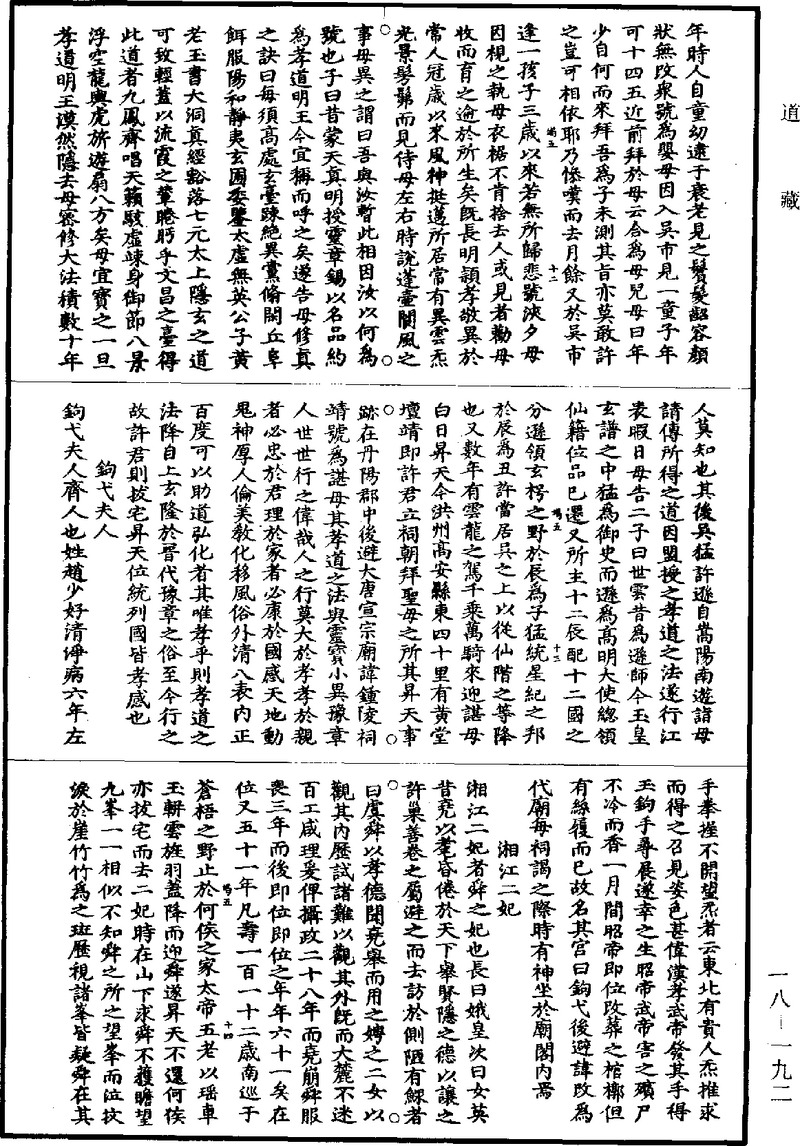 道藏
年時人自童幼逮于衰老見之鬢髮韶容顏
狀無改衆號為嬰母因入吳市見一童子年
可十四五近前拜於母云合為母兒母曰年
少自何而來拜吾為子未測其旨亦莫敢許
之豈可相依耶乃慘嘆而去月餘又於吳市
逢一孩子三歲以來若無所歸悲號浹夕母
因視之執母衣裾不肯捨去人或見者勸母
收而育之逾於所生矣既長明穎孝敬異於
常人冠歲以來風神挺邁所居常有異雲炁
光景髣髴而見侍母左右時說蓬壺閬風之
事母異之謂曰吾與汝暫此相因汝以何為
號也子曰昔蒙天真明授靈章錫以名品約
為孝道明王今宜稱而呼之矣遂告母修真
之訣曰每須高處玄臺踈絕異黨脩閑丘阜
餌服陽和靜夷玄圃委鑒太虛無英公子黃
老玉書大洞真經豁落七元太上隱玄之道
可致輕蓋以流霞之輦睠眄乎文昌之臺得
此道者九鳳齊唱天籟駭虛竦身御節八景
浮空龍輿虎旂遊扇八方矣母宜寶之一旦
孝道明王漠然隱去母密修大法積數十年
人莫知也其後吳猛許遜自嵩陽南遊詣母
請傳所得之道因盟授之孝道之法遂行江
表暇日母告二子曰世雲昔為遜師今玉皇
玄譜之中猛為御史而遜為高明大使總領
仙籍位品已遷又所主十二辰配十二國之
分遜領玄枵之野於辰為子猛統星紀之邦
於辰為丑許當居吳之上以從仙階之等降
也又數年有雲龍之駕千乘萬騎來迎諶母
白日昇天今洪州高安縣東四十里有黃堂
壇靖即許君立祠朝拜聖母之所其昇天事
跡在丹陽郡中後避大唐宣宗廟諱鍾陵祠
靖號為諶母其孝道之法與靈寶小異豫章
人世世行之偉哉人之行莫大於孝孝於親
者必忠於君理於家者必康於國感天地動
鬼神厚人倫美教化移風俗外清八表內正
百度可以助道弘化者其唯孝乎則孝道之
法降自上玄隆於晉代豫章之俗至今行之
故許君則拔宅昇天位統列國皆孝感也
鉤弋夫人
鉤弋夫人齊人也姓趙少好清淨病六年左
手拳捲不開望炁者云東北有貴人炁推求
而得之召見姿色甚偉漢孝武帝發其手得
玉鉤手尋展遂幸之生昭帝武帝害之殯尸
不冷而香一月間昭帝即位改葬之棺槨但
有絲履而已故名其宮曰鉤弋後避諱改為
代廟每祠謁之際時有神坐於廟閣內焉
湘江二妃
湘江二妃者舜之妃也長曰娥皇次曰女英
昔堯以耄昏倦於天下舉賢隱之德以讓之
許巢善卷之屬避之而去訪於側陋有鰥者
曰虞舜以孝德聞堯舉而用之娉之二女以
觀其內歷試諸難以觀其外既而大麓不迷
百工咸理爰俾攝政二十八年而堯崩舜服
喪三年而後即位即位之年年六十一矣在
位又五十一年凡壽一百一十二歲南巡于
蒼梧之野止於何侯之家太帝五老以瑶車
玉軿雲旌羽蓋降而迎舜遂昇天不還何侯
亦拔宅而去二妃時在山下求舜不獲瞻望
九峯一一相似不知舜之所之望峯而泣抆
淚於崖竹竹為之斑歷視諸峯皆疑舜在其
一八—一九二